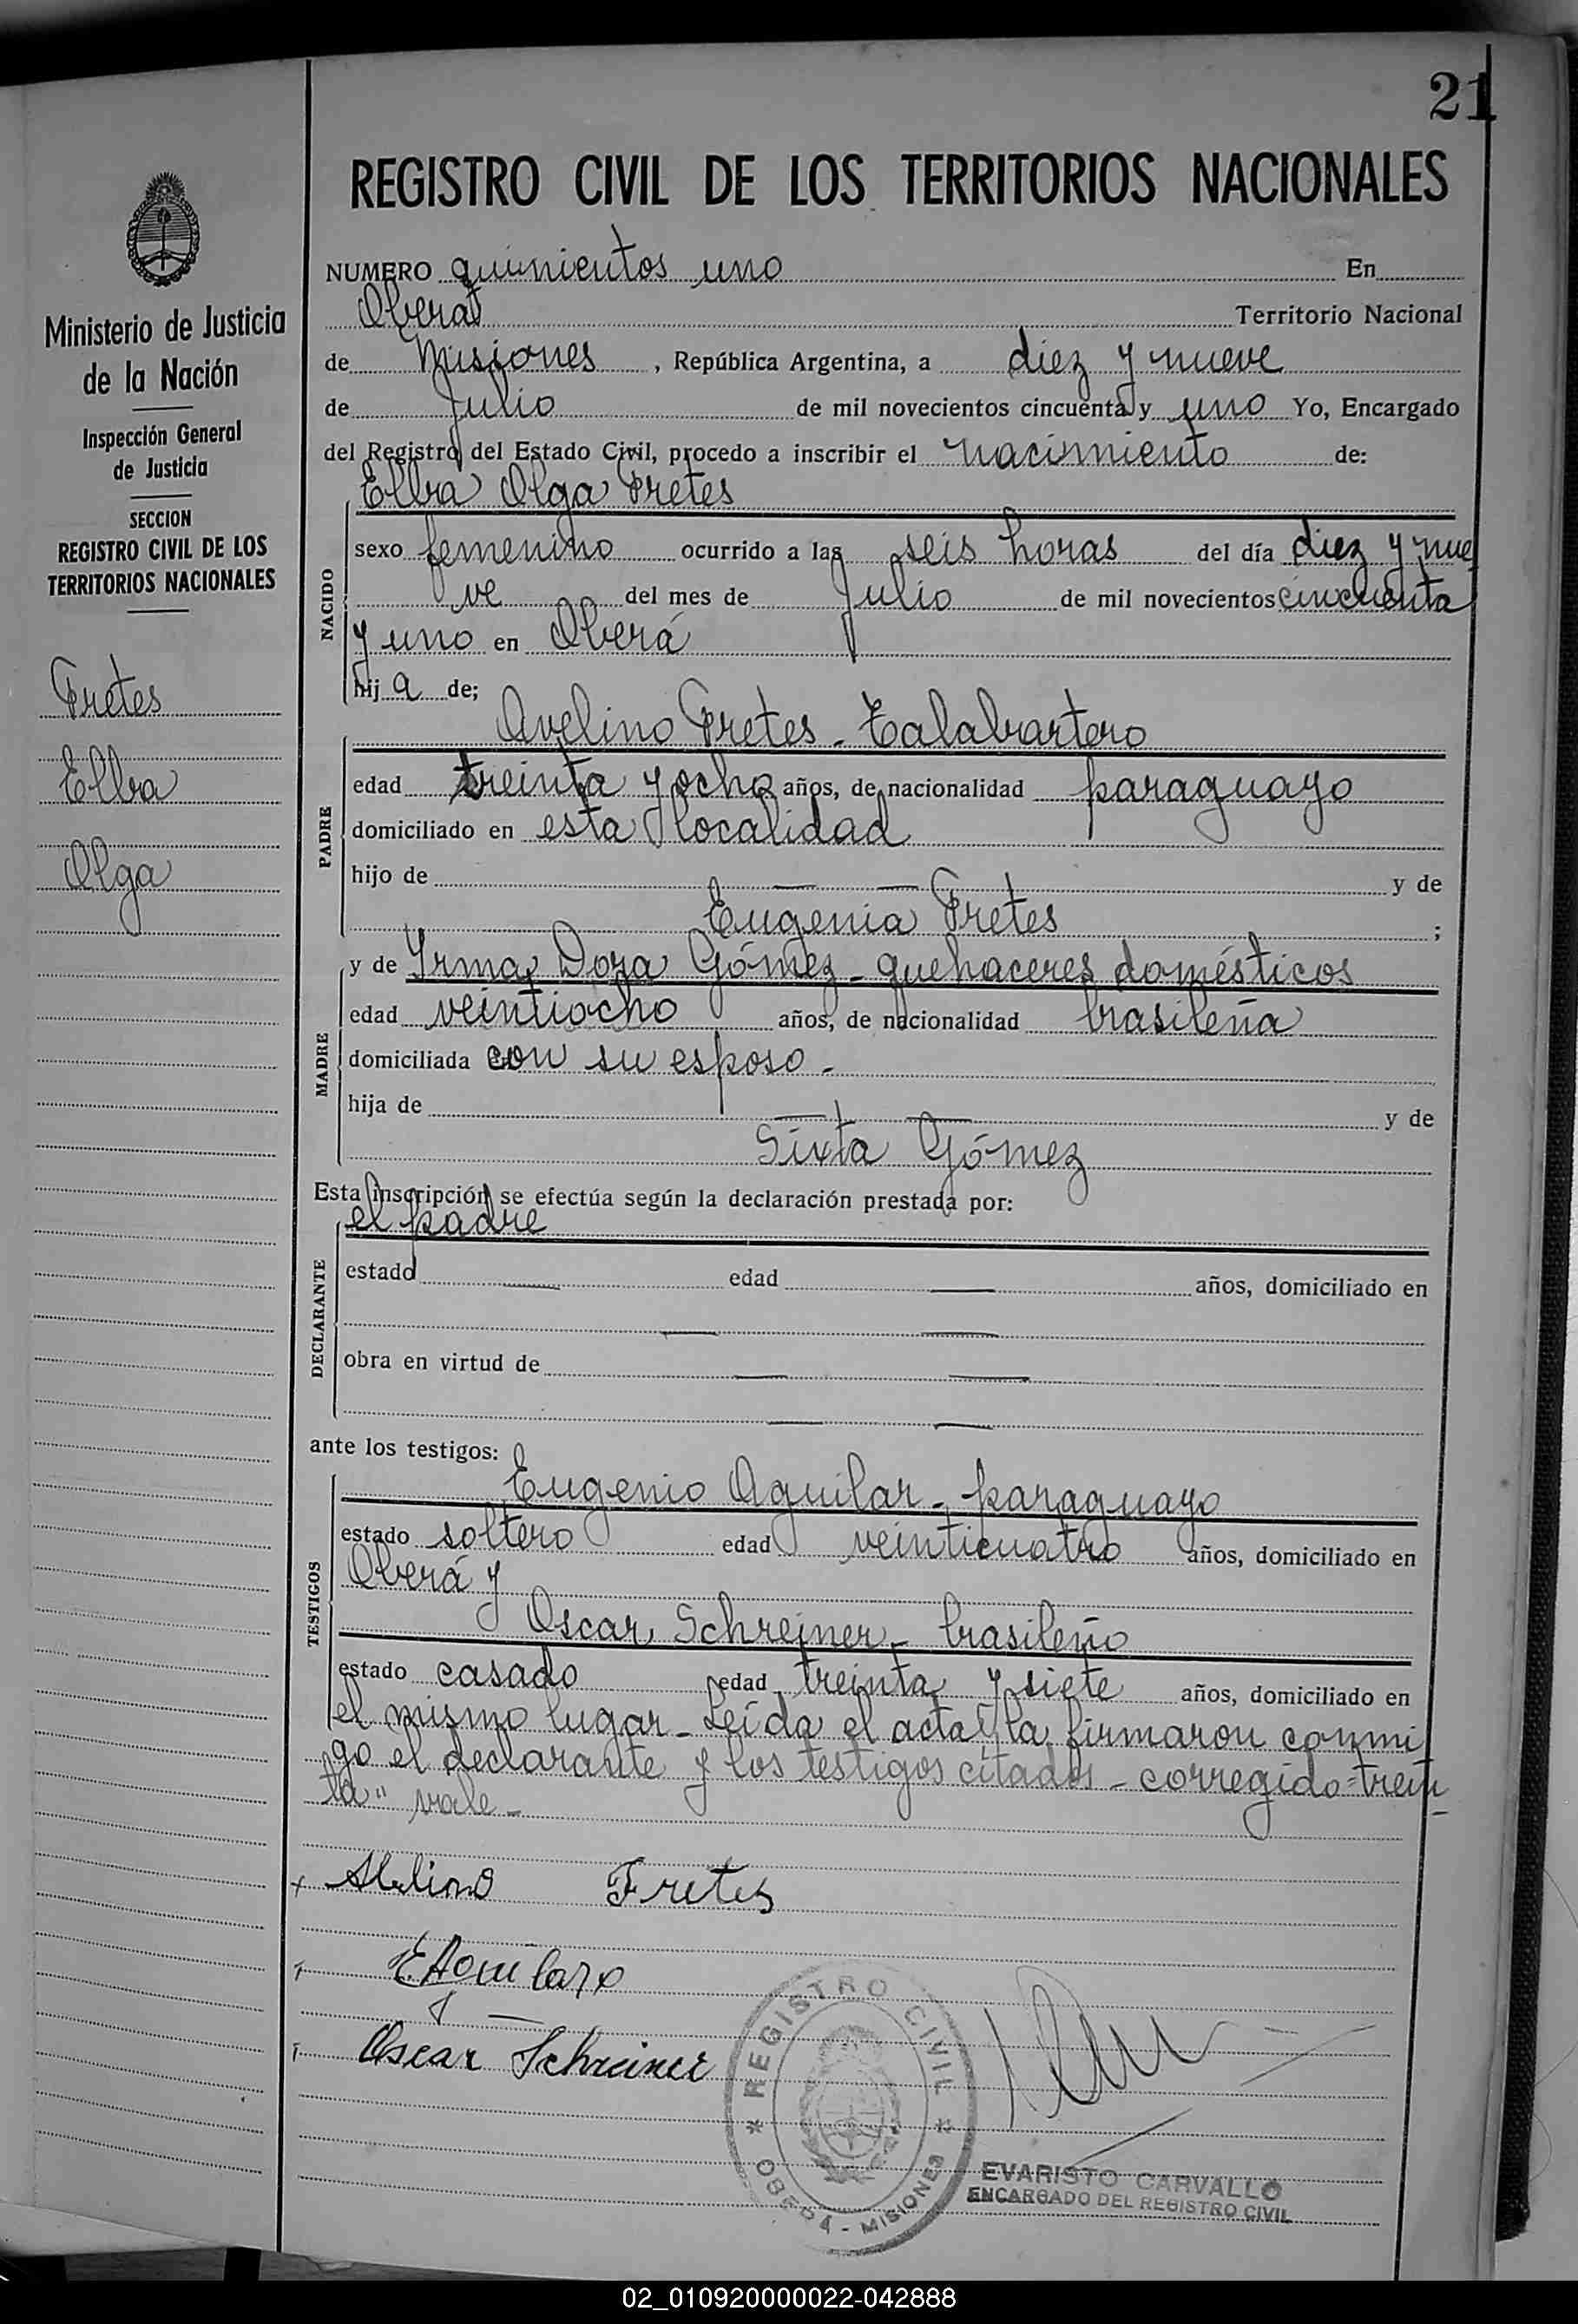 21
REGISTRO CIVIL DE LOS TERRITORIOS NACIONALES
Ministerio de Justicia
de la Nación
Inspección General
de Justicia
SECCION
REGISTRO CIVIL DE LOS
TERRITORIOS NACIONALES
Fretes
Elba
Olga
NUMERO quinientos uno En
Oberá Territorio Nacional
de Misiones, República Argentina, a diez y nueve
de Julio de mil novecientos cincuenta y uno Yo, Encargado
del Registro del Estado Civil, procedo a inscribir el nacimiento de:
Elba Olga Fretes
NACIDO
sexo femenino ocurrido a las seis horas del día diez y nue
ve del mes de Julio de mil novecientos cincuenta
y uno en Oberá
hija de;
Avelino Fretes - Talabartero
PADRE
edad treinta y ocho años, de nacionalidad paraguayo
domiciliado en esta localidad
hijo de — — y de
Eugenia Fretes ;
MADRE
y de Yrma Dora Gómez - quehaceres domésticos
edad veintiocho años, de nacionalidad brasileña
domiciliada con su esposo -
hija de — — y de
Sixta Gómez
Esta inscripción se efectúa según la declaración prestada por:
el padre
DECLARANTE
estado — edad — años, domiciliado en
— —
obra en virtud de — —
— —
ante los testigos:
Eugenio Aguilar - paraguayo
TESTIGOS
estado soltero edad veinticuatro años, domiciliado en
Oberá y
Oscar Schreiner - brasileño
estado casado edad treinta y siete años, domiciliado en
el mismo lugar - Leída el acta la firmaron conmi
go el declarante y los testigos citados - corregido "trein
ta" vale -
Abelino Fretes
E Aguilar
Oscar Schreiner
REGISTRO CIVIL
OBERA - MISIONES
EVARISTO CARVALLO
ENCARGADO DEL REGISTRO CIVIL
02_010920000022-042888